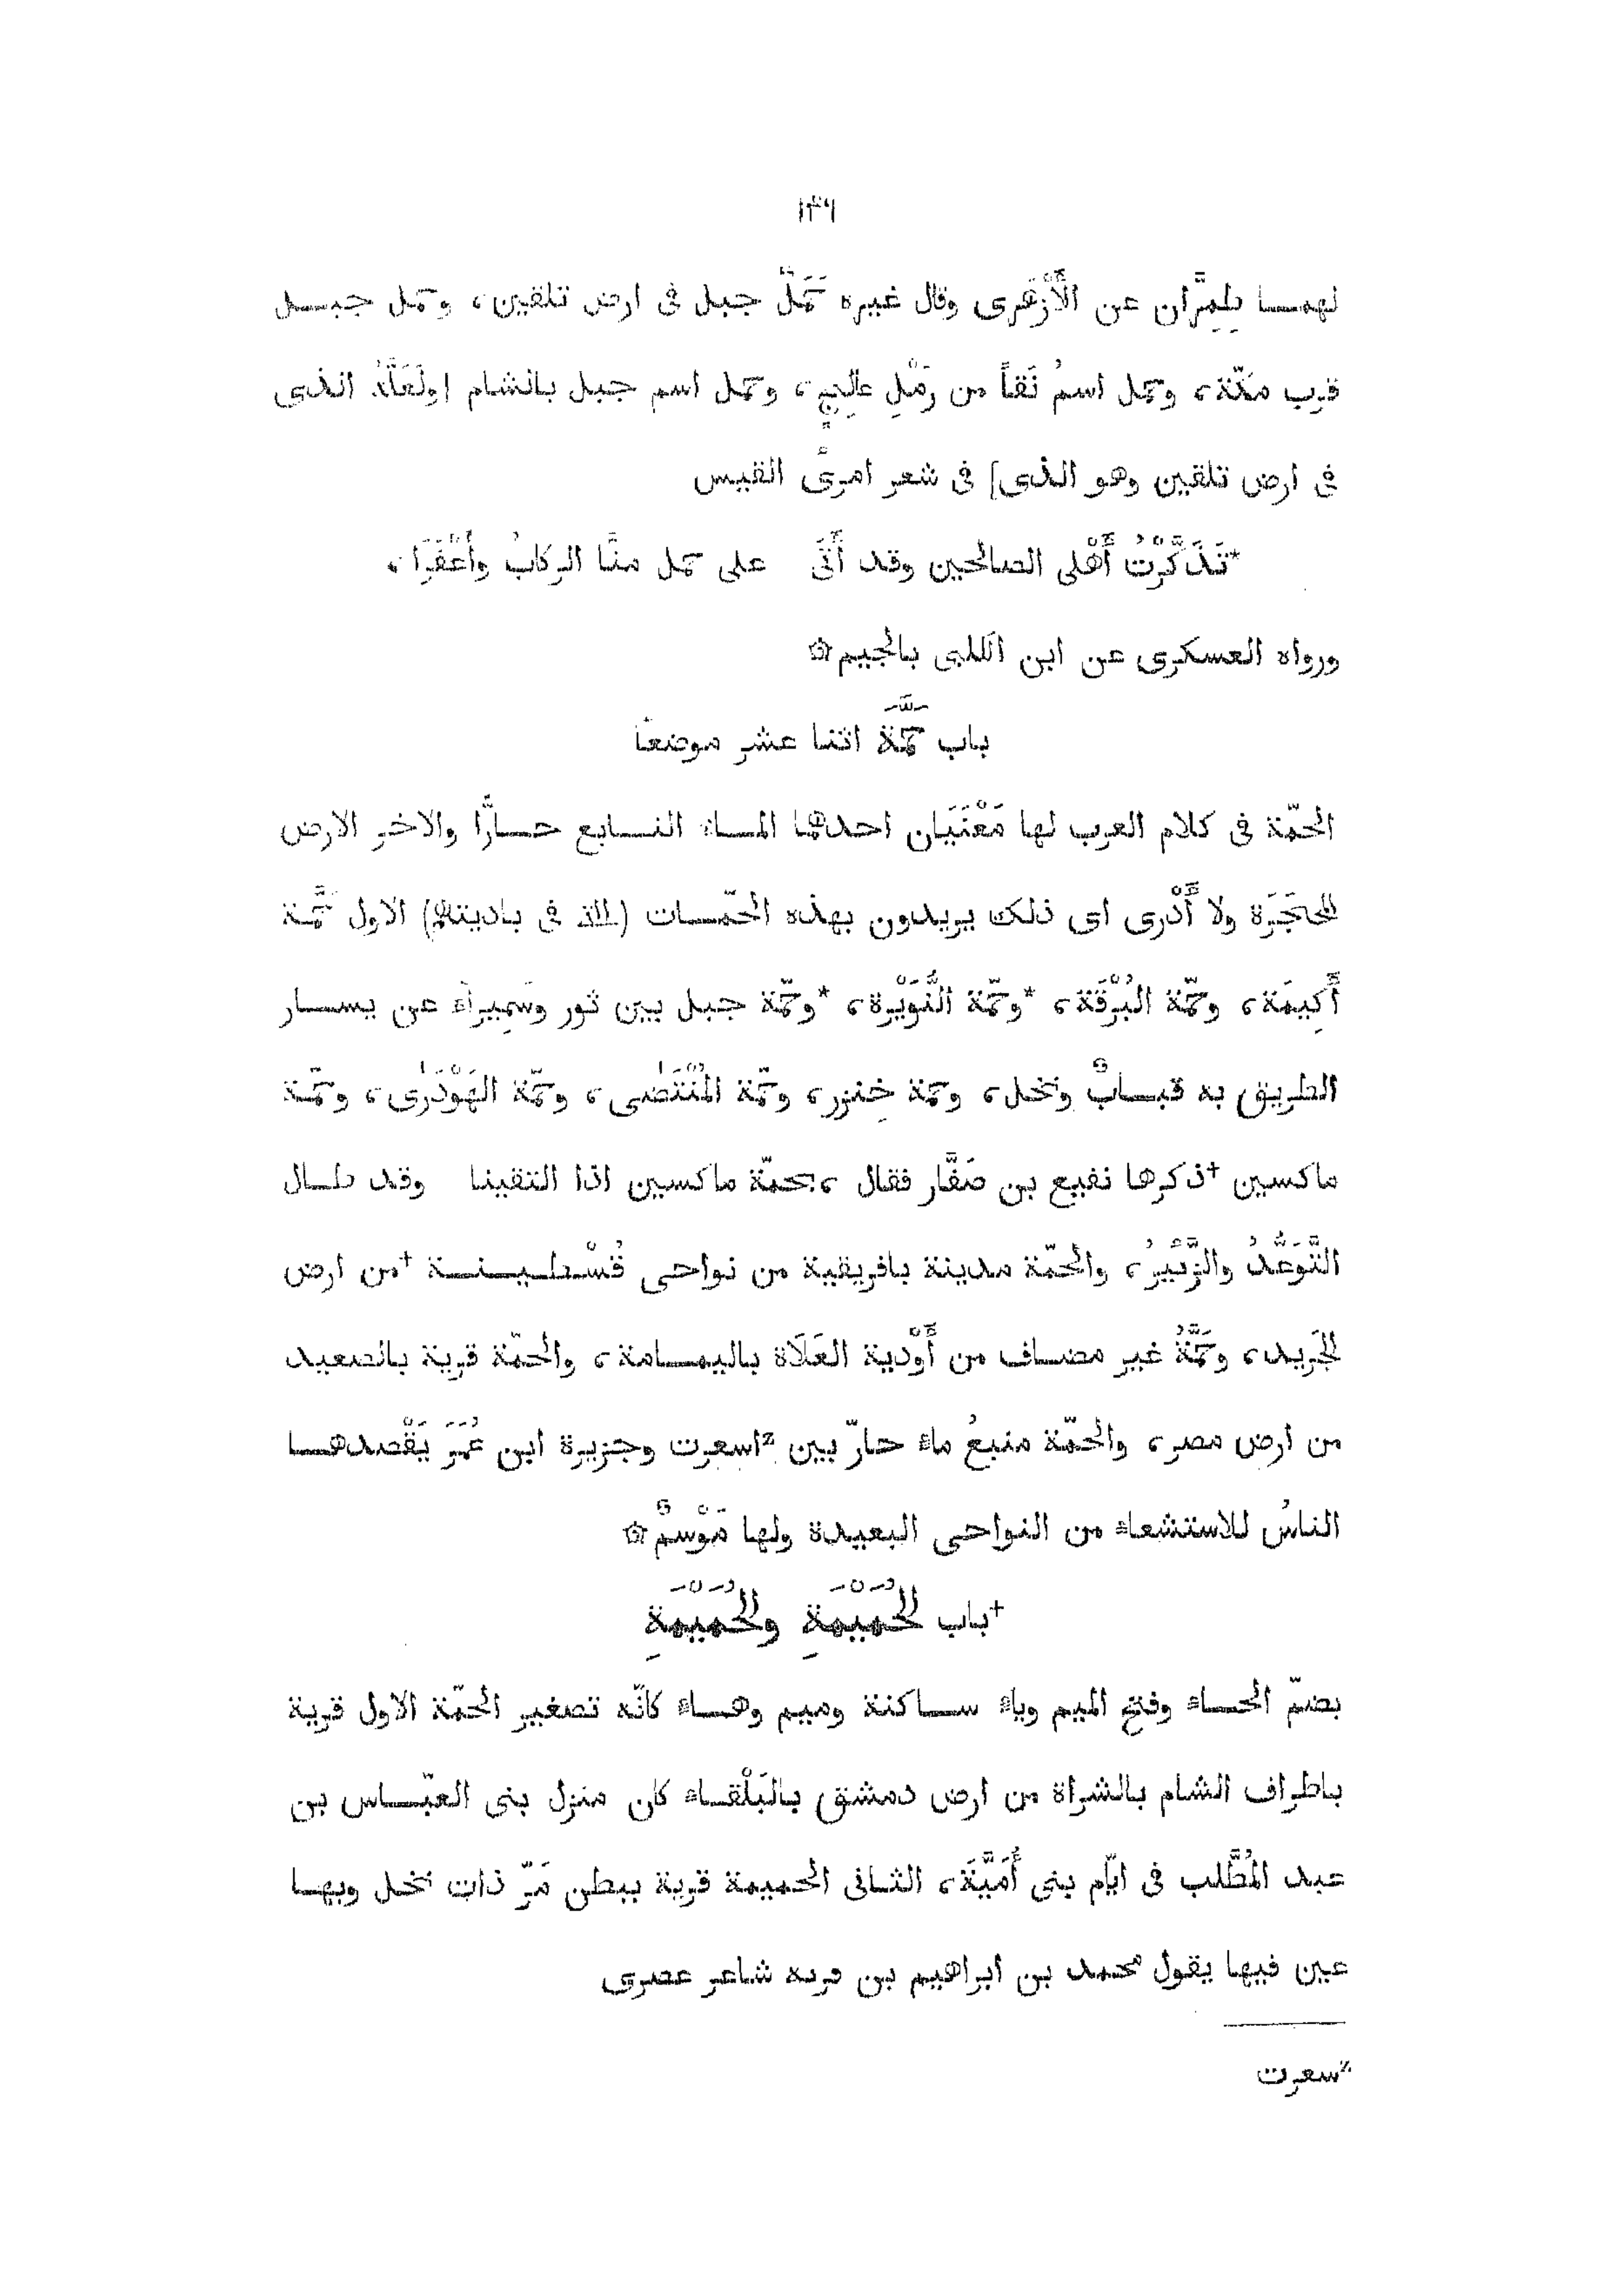 ١٤٦
لهمــا طِمِرَّان عن الأَزْهَرى وقال غيره حَمَلٌ جبل فى ارض بلقين، وحمل جبــل
قرب مكّة، وحمل اسمُ نَقاً من رَمْلِ عالِجٍ، وحمل اسم جبل بالشام [ولَعَلَّهُ الذى
فى ارض بلقين وهو الذى] فى شعر امرئ القيس
*تَذَكَّرْتُ أَهْلى الصالحين وقد أَتَى على حمل منّا الركابُ وأَعْفَرَا،
ورواه العسكرى عن ابن الكلبى بالجيم ۞
باب حَمَّة اثنا عشر موضعًا
الحمّة فى كلام العرب لها مَعْنَيَان احدهما المــاء النــابع حــارًّا والاخر الارض
المحجَرَة ولا أَدْرى اى ذلك يريدون بهذه الحمّــات (الله فى باديتهم) الاول حَمَّــة
أَكِيمَة، وحمّة البُرْقَة، *وحمّة الثُّوَيْرة، *وحمّة جبل بين ثور وسَمِيراء عن يســار
الطريق به قبــابٌ ونخل، وحمة خِنزِر، وحمّة المُنْتَضٰى، وحمّة الهَوْدَرٰى، وحمّــة
ماكسين †ذكرها نفيع بن صَفَّار فقال، بحمّة ماكسين اذا التقينا وقد طــال
التَّوَعُّدُ والزَّئيرُ، والحمّة مدينة بافريقية من نواحى قُسْطــيــنــة †من ارض
الجَريد، وحَمَّةُ غير مضــاف من أَوْدية العَلَاة باليمــامة، والحمّة قرية بالصعيد
من ارض مصر، والحمّة منبعُ ماء حارّ بين ᶻاسعرت وجزيرة ابن عُمَرَ يَقْصدهــا
الناسُ للاستشعاء من النواحى البعيدة ولها مَوْسمٌ ۞
†باب الحُمَيْمَةِ والحُمَيْمَةِ
بضمّ الحــاء وفتح الميم وياء ســاكنة وميم وهــاء كانّه تصغير الحمّة الاول قرية
باطراف الشام بالشراة من ارض دمشق بالبَلْقــاء كان منزل بنى العبّــاس بن
عبد المُطَّلب فى ايّام بنى أُمَيَّةَ، الثــانى الحميمة قرية ببطن مَرّ ذات نخل وبهــا
عين فيها يقول محمد بن ابراهيم بن شاعر عصرى
ᶻسعرت